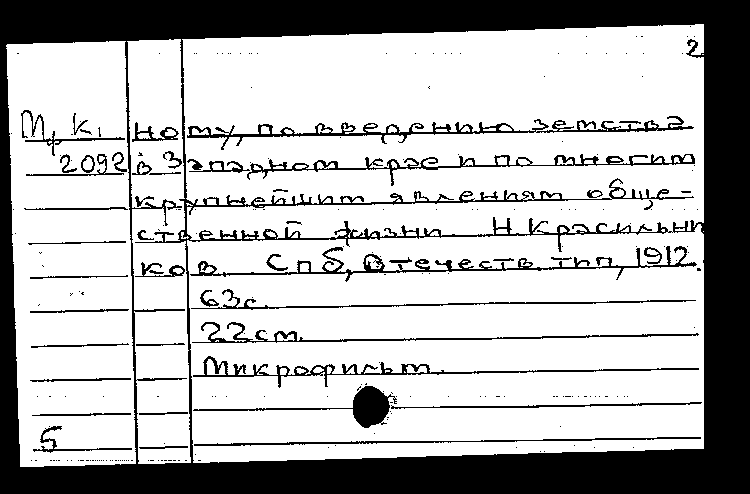 2
Мф К1 ному, по введению земства
2092 в Западном крае и по многим
крупнейшим явлениям обще-
ственной жизни. Н Красильни
ков. Спб, Отечеств. тип, 1912.
63с.
22см.
Микрофильм.
5